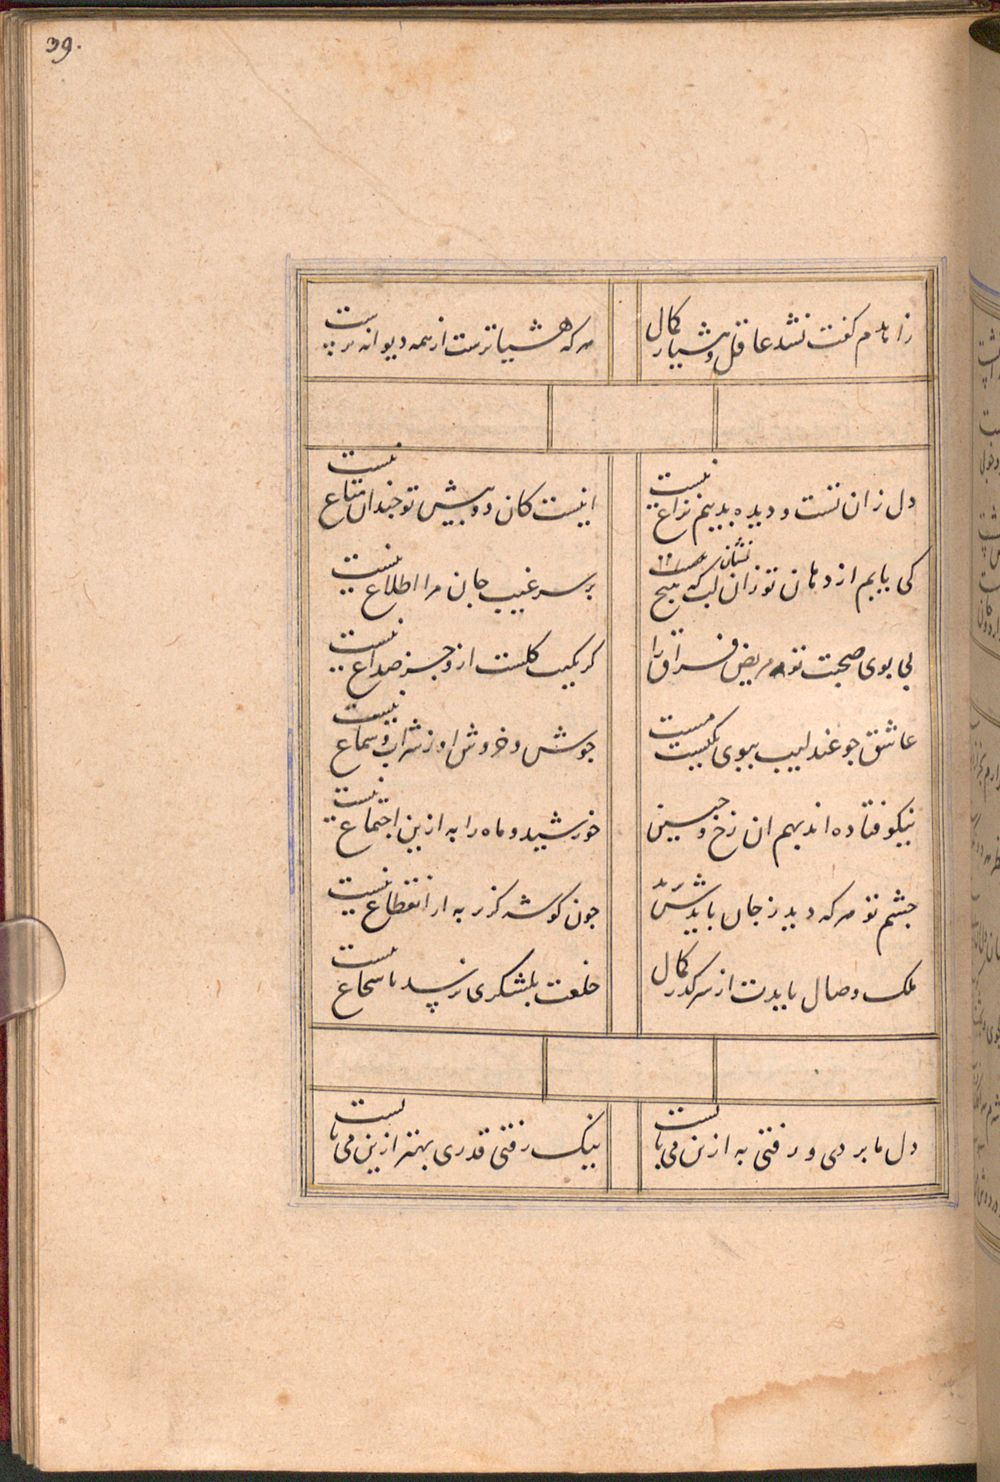 39.
زاهدم گفت نشد عاقل و هشیار کمال
هر که هشیارترست از همه دیوانه ترست
دل زان تست و دیده بدینم نزاع نیست
اینست کان دو پیش تو چندان متاع نیست
کی یابیم از دهان تو زان لب که هیچ نشان
بر سر غیب جان مرا اطلاع نیست
بی بوی صحبت تو مریض فراق را
کر یکیب کلست ازو جز صداع نیست
عاشق جو عندلیب ببوی کلیست مست
جوش و خروش او ز شراب و سماع نیست
نیکو فتاده اند بهم ان رخ و جبین
خورشید و ماه را به ازین اجتماع نیست
جشم تو هر که دید ز جان بایدش برید
جون کوشه کزر به از انقطاع نیست
ملک وصال بایدت از سر گذر کمال
خلعت بلشکری نرسد تا شجاع نیست
دل ما بردی و رفتی به ازین می بایست
نیک رفتی قدری بهتر ازین می بایست